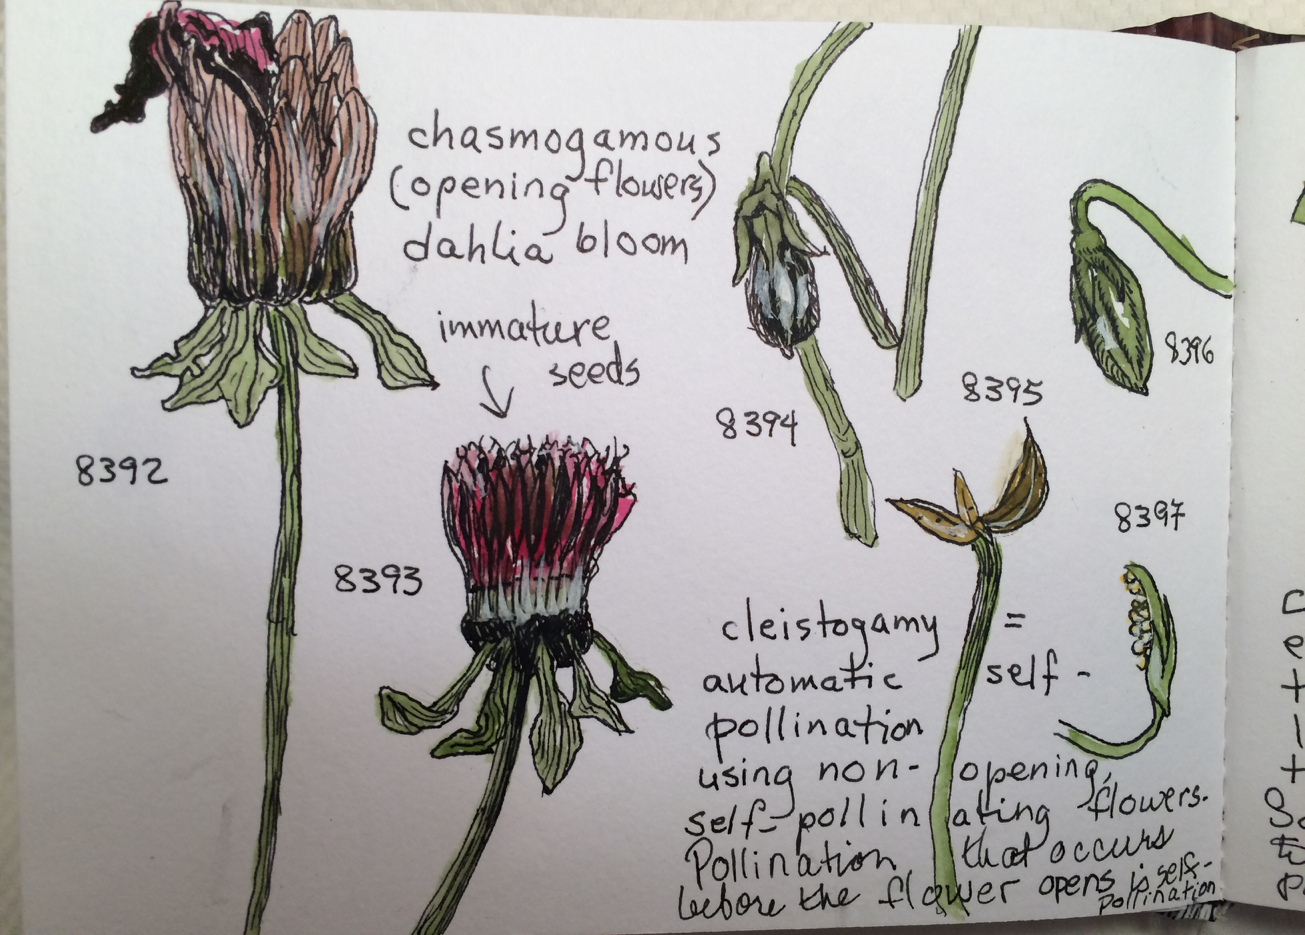 chasmogamous
(opening flowers)
dahlia bloom
immature
seeds
8392
8393
8394
8395
8396
8397
cleistogamy =
automatic self-
pollination
using non-opening,
self-pollinating flowers.
Pollination that occurs
before the flower opens is self-
pollination